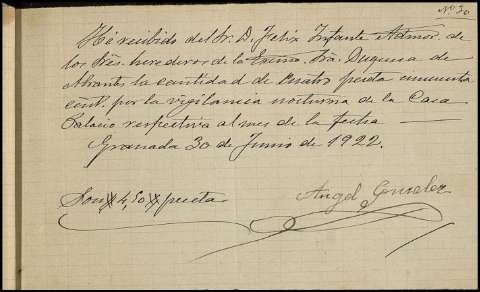 Nº 30
He recibido del Sr. D. Felix Infante Admor. de
los Sres. herederos de la Excma. Sra. Duquesa de
Abrantes la cantidad de cuatro pesetas cincuenta
cent. por la vigilancia nocturna de la Casa
Palacio respectiva al mes de la fecha
Granada 30 de Junio de 1922.
Son 4,50 pesetas
Angel Gonzalez